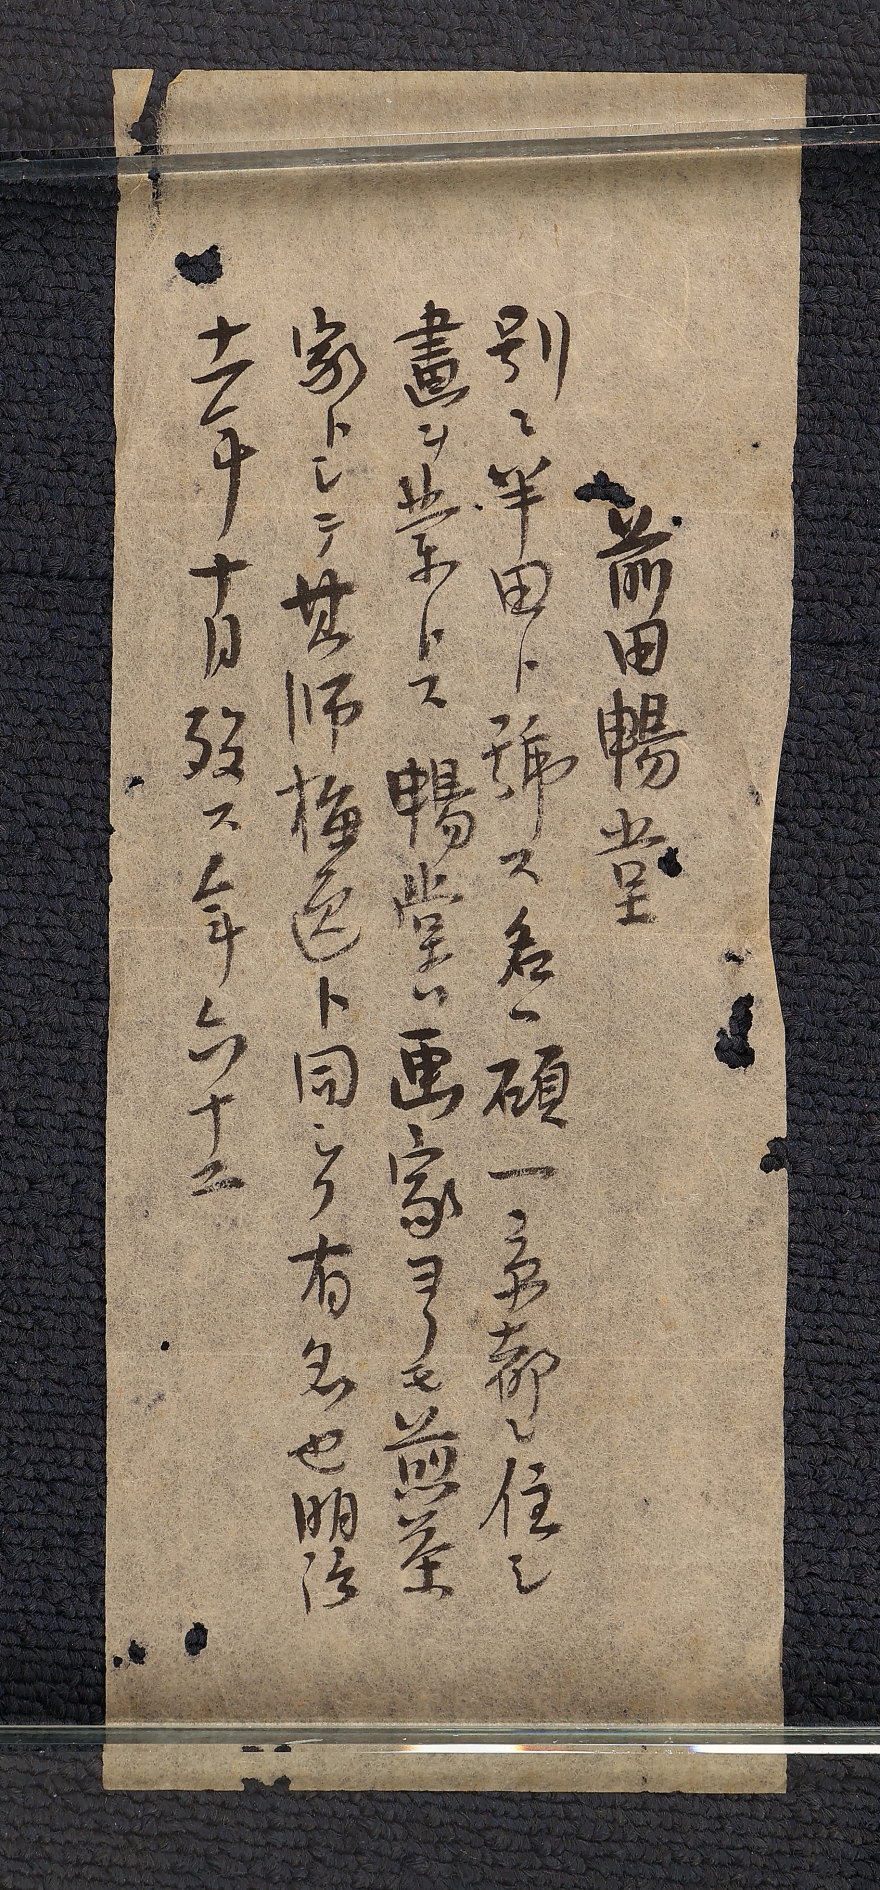 前田暢堂
別ニ半田ト號ス名ハ碩一京都ニ住シ
畫ヲ業トス暢堂ハ画家ヨリモ煎茶
家トシテ其師梅逸ト同シク有名也明治
十一年十月歿ス年六十二